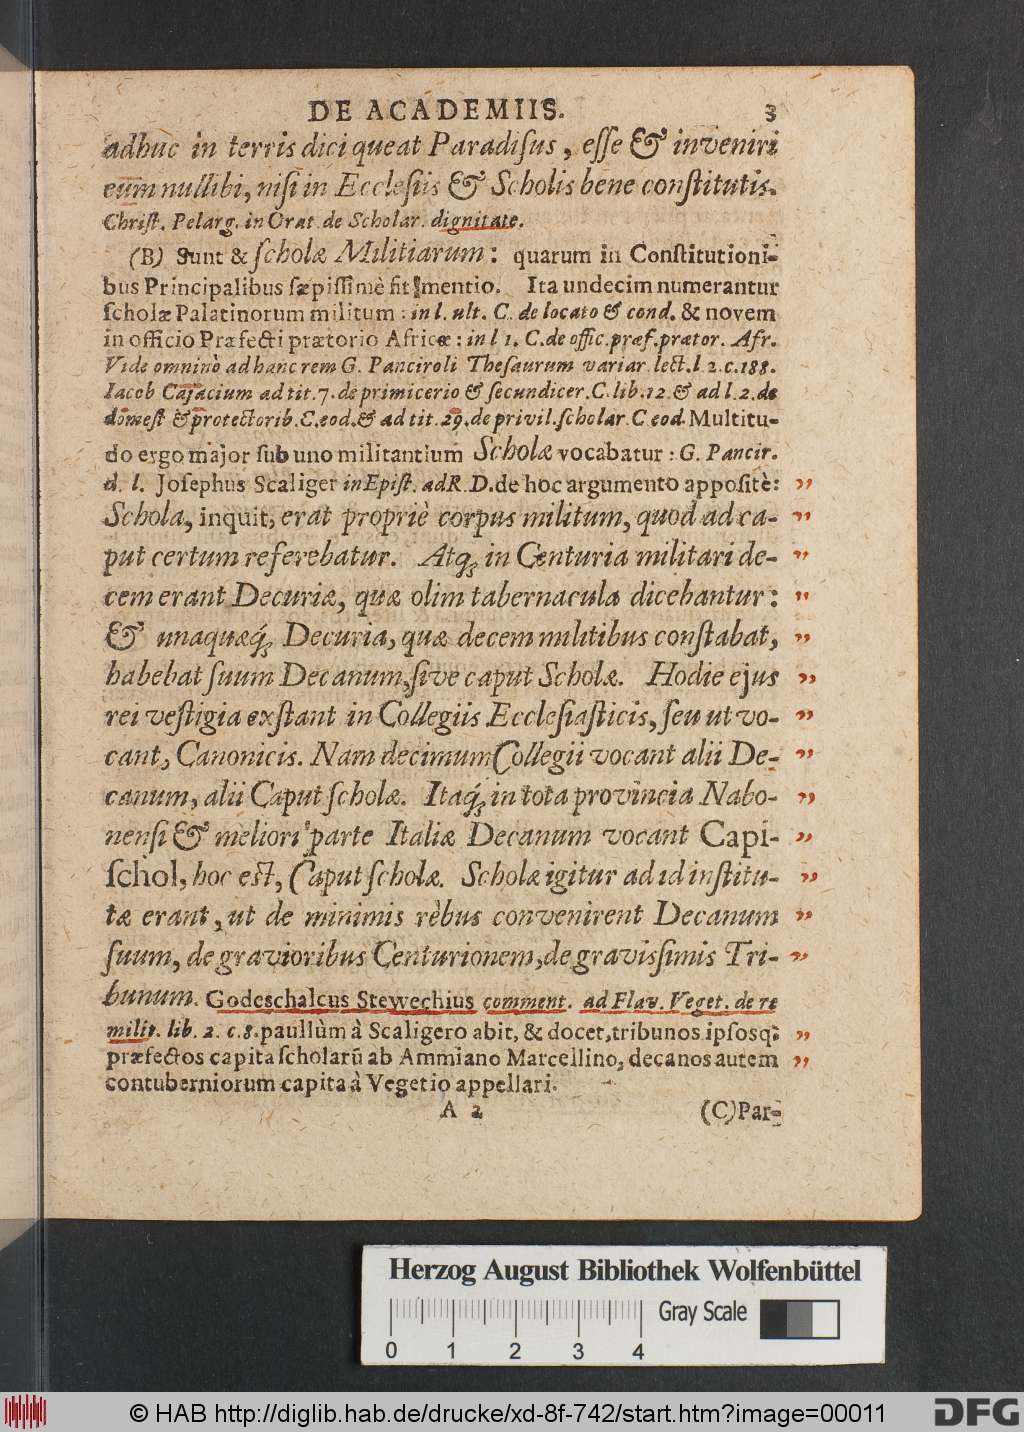 DE ACADEMIIS. 3
adhuc in terris dici queat Paradiſus, eſſe & inveniri
eum nullibi, niſi in Eccleſiis & Scholis bene conſtitutis.
Chriſt. Pelarg. in Orat. de Scholar. dignitate.
(B) Sunt & ſcholæ Militiarum: quarum in Conſtitutioni-
bus Principalibus ſæpiſſimè fit mentio. Ita undecim numerantur
ſcholæ Palatinorum militum: in l. ult. C. de locato & cond. & novem
in officio Præfecti prætorio Africæ: in l 1. C. de offic. præf. prætor. Afr.
Vide omninò ad hanc rem G. Panciroli Theſaurum variar. lect. l. 2. c. 188.
Iacob Cujacium ad tit. 7. de primicerio & ſecundicer. C. lib. 12. & ad l. 2. de
domeſt & protectorib. C. eod. & ad tit. 29. de privil. ſcholar. C eod. Multitu-
do ergo major ſub uno militantium Scholæ vocabatur: G. Pancir.
d. l. Joſephus Scaliger in Epiſt. ad R. D. de hoc argumento appoſitè: ”
Schola, inquit, erat propriè corpus militum, quod ad ca- ”
put certum referebatur. Atq; in Centuria militari de- ”
cem erant Decuriæ, quæ olim tabernacula dicebantur: ”
& unaquæq́; Decuria, quæ decem militibus conſtabat, ”
habebat ſuum Decanum, ſive caput Scholæ. Hodie ejus ”
rei veſtigia exſtant in Collegiis Eccleſiaſticis, ſeu ut vo- ”
cant, Canonicis. Nam decimum Collegii vocant alii De- ”
canum, alii Caput ſcholæ. Itaq́; in tota provincia Nabo- ”
nenſi & meliori parte Italiæ Decanum vocant Capi- ”
ſchol, hoc eſt, Caput ſcholæ. Scholæ igitur ad id inſtitu- ”
tæ erant, ut de minimis rèbus convenirent Decanum ”
ſuum, de gravioribus Centurionem, de gravisſimis Tri- ”
bunum. Godeschalcus Stewechius comment. ad Flav. Veget. de re
milit. lib. 2. c. 8. paullùm à Scaligero abit, & docet, tribunos ipſosq; ”
præfectos capita ſcholarũ ab Ammiano Marcellino, decanos autem ”
contuberniorum capita à Vegetio appellari.
A 2 (C) Par-
Herzog August Bibliothek Wolfenbüttel
Gray Scale
0 1 2 3 4
© HAB http://diglib.hab.de/drucke/xd-8f-742/start.htm?image=00011
DFG